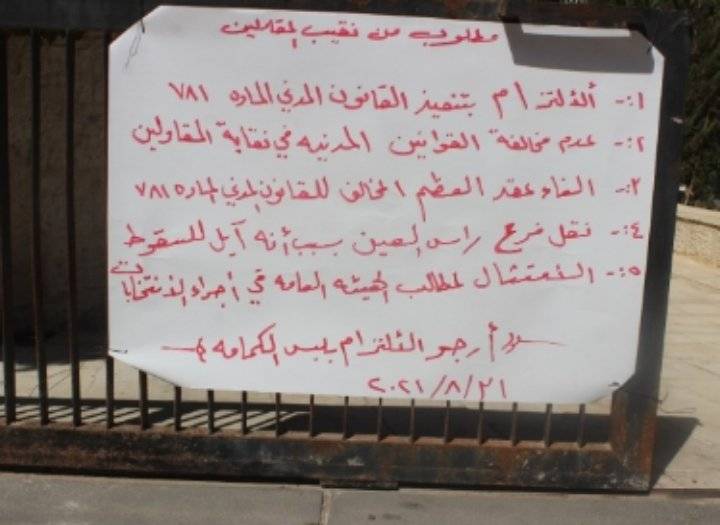 مطلوب من نقيب المقاولين
١:- الألتزام بتنفيذ القانون المدني الماده ٧٨١
٢:- عدم مخالفة القوانين المدنيه في نقابة المقاولين
٣:- الغاء عقد العظم المخالف للقانون المدني الماده ٧٨١
٤:- نقل فرع راس العين بسبب أنه آيل للسقوط
٥:- الأمتثال لمطالب الهيئه العامه في أجراء الأنتخابات
أرجو الألتزام بلبس الكمامه
٢٠٢١/٨/٢١